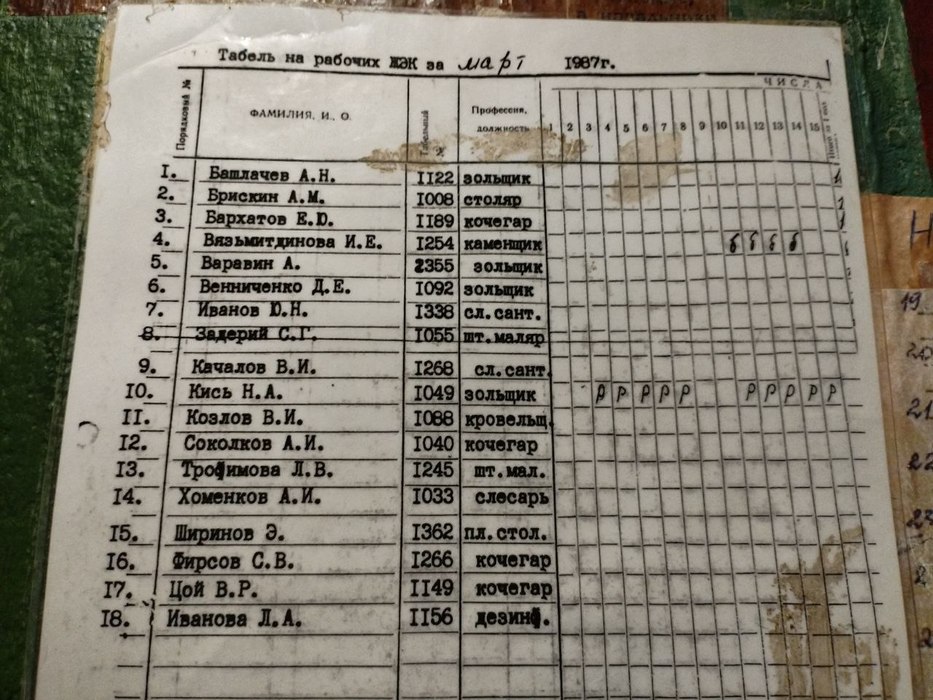 Табель на рабочих ЖЭК за март 1987г.
Порядковый № ФАМИЛИЯ, И., О. Табельный № Профессия, должность ЧИСЛА
1 2 3 4 5 6 7 8 9 10 11 12 13 14 15
1. Башлачев А.Н. 1122 зольщик
2. Брискин А.М. 1008 столяр
3. Бархатов Е.Ю. 1189 кочегар
4. Вязьмитдинова И.Е. 1254 каменщик б б б б
5. Варавин А. 2355 зольщик
6. Венниченко Д.Е. 1092 зольщик
7. Иванов Ю.Н. 1338 сл.сант.
8. Задерий С.Г. 1055 шт.маляр
9. Качалов В.И. 1268 сл.сант.
10. Кись Н.А. 1049 зольщик р р р р р р р р р р
11. Козлов В.И. 1088 кровельщ.
12. Соколков А.И. 1040 кочегар
13. Трофимова Л.В. 1245 шт.мал.
14. Хоменков А.И. 1033 слесарь
15. Ширинов Э. 1362 пл.стол.
16. Фирсов С.В. 1266 кочегар
17. Цой В.Р. 1149 кочегар
18. Иванова Л.А. 1156 дезинф.
19.